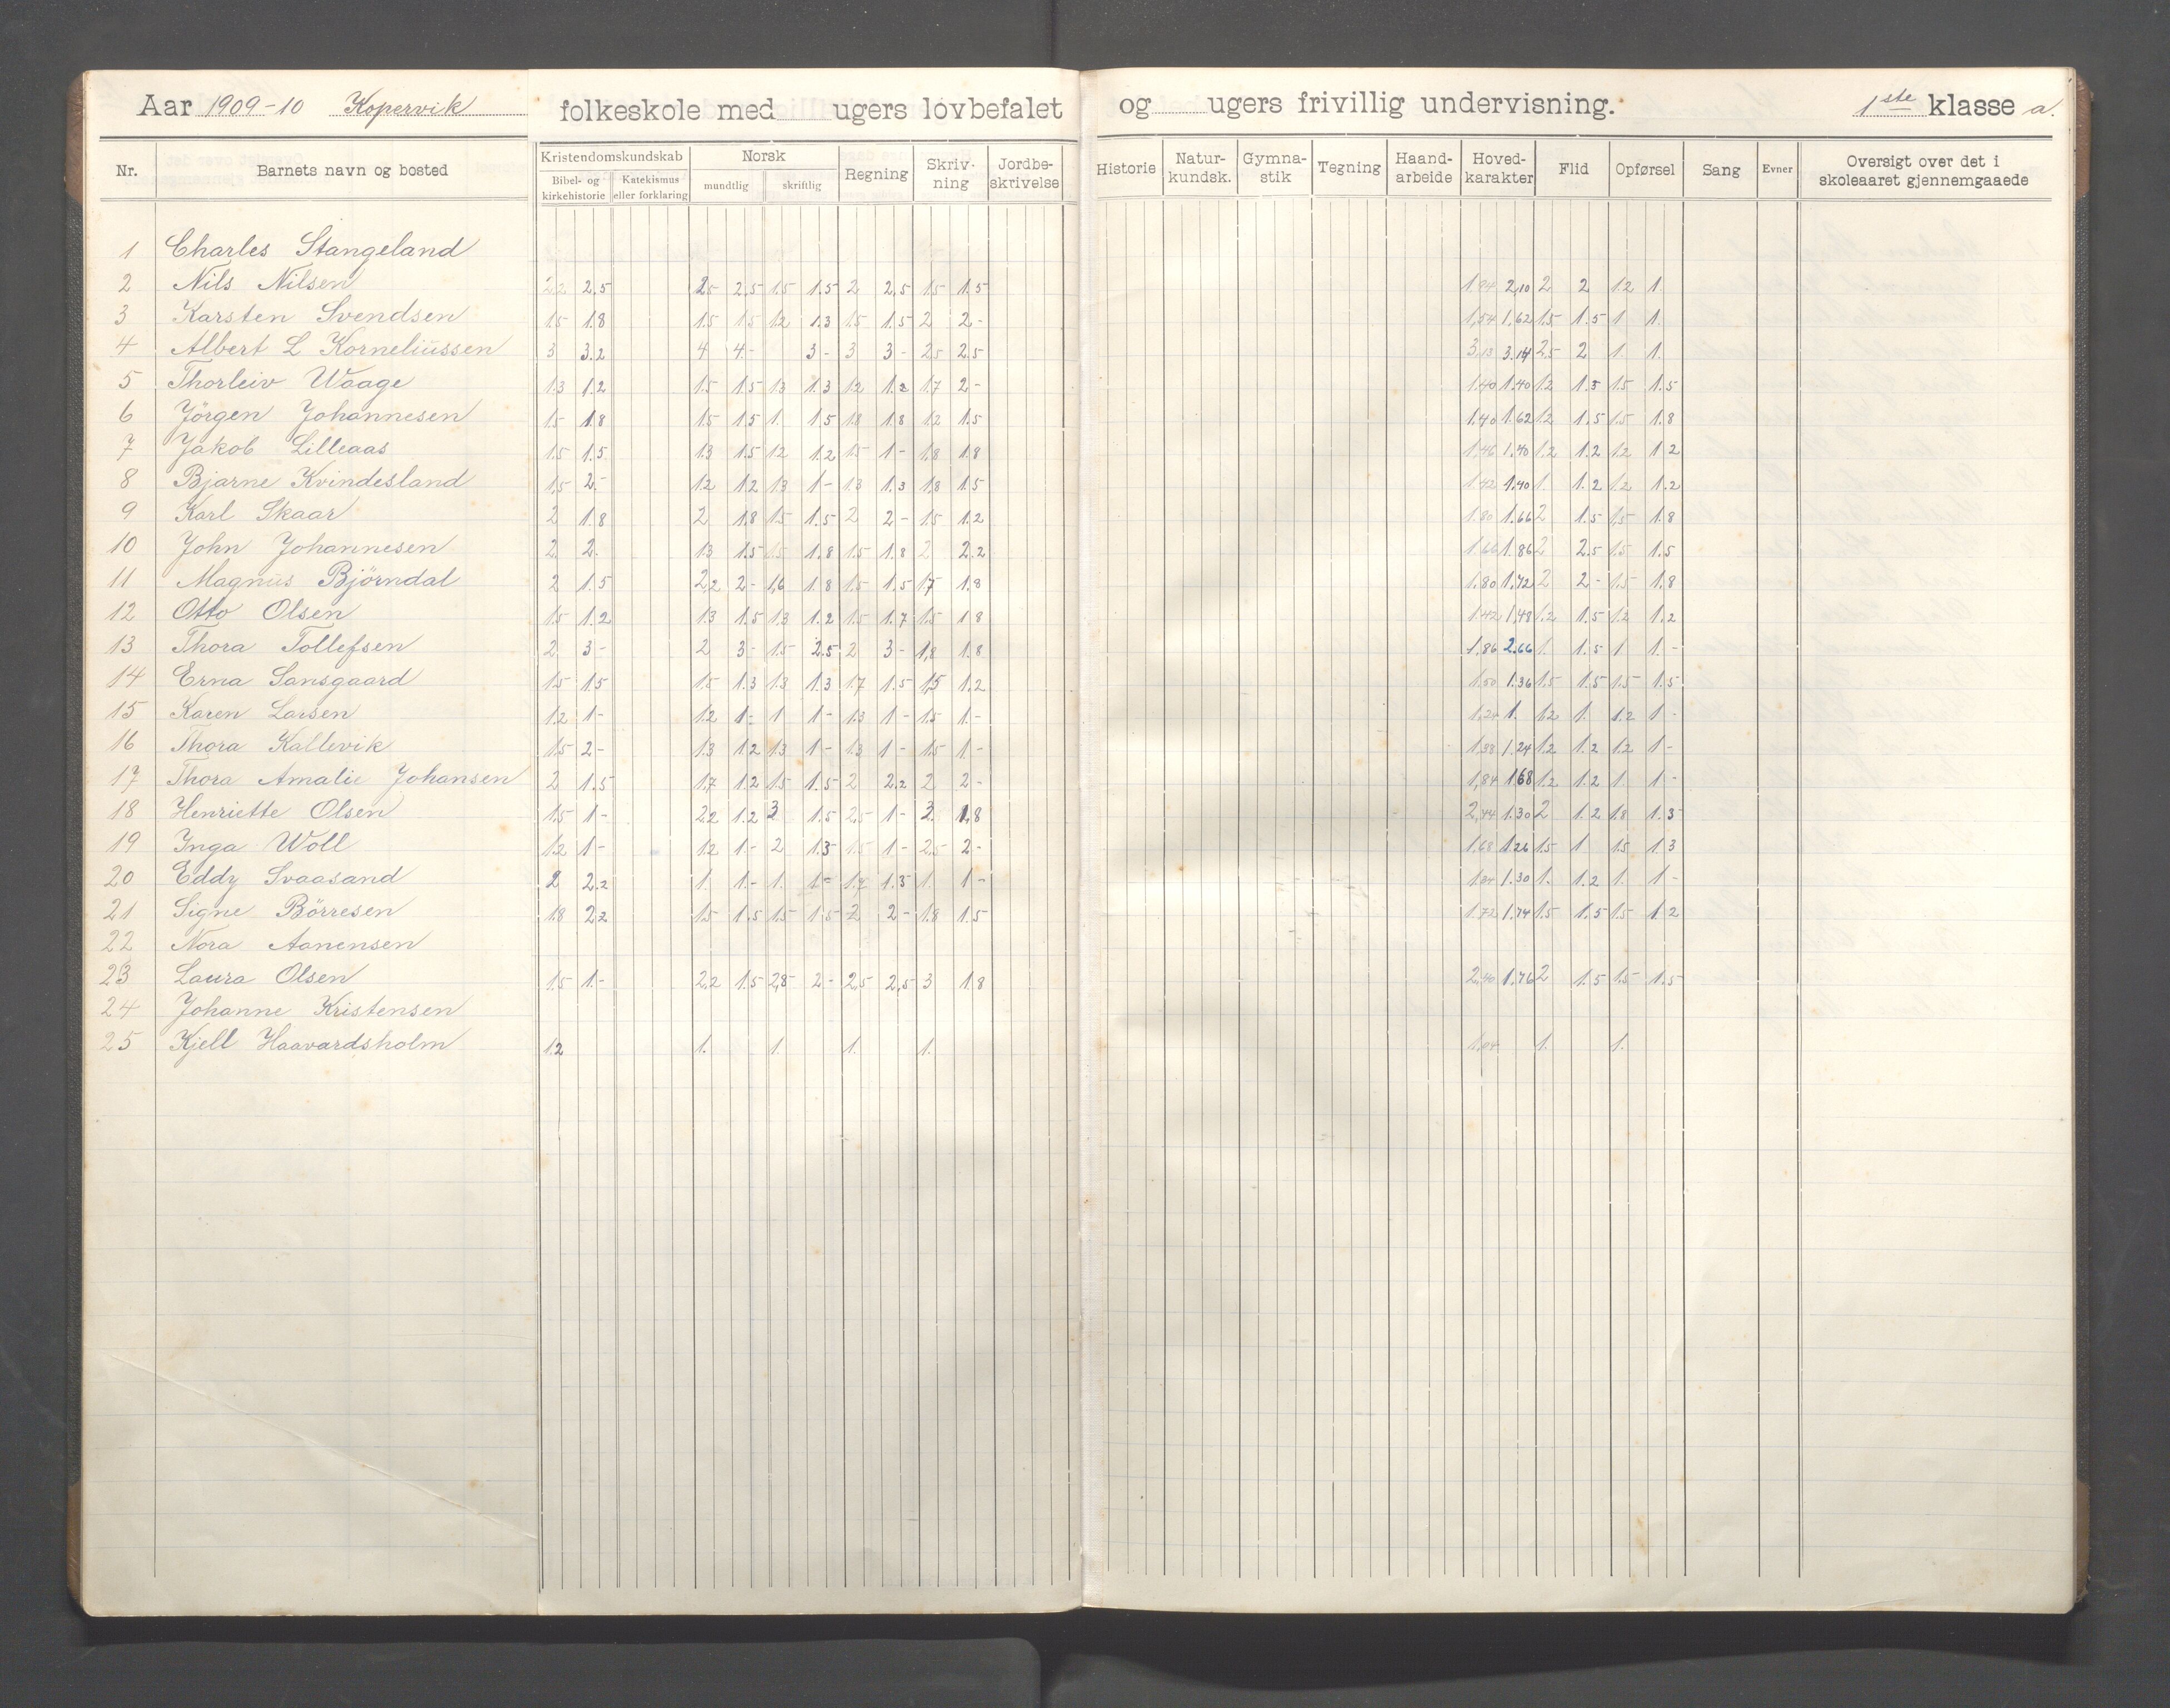 Aar 1909-10 Kopervik folkeskole med ugers lovbefalet og ugers frivillig undervisning. 1ste klasse a.
Nr. Barnets navn og bosted Kristendomskundskab Norsk Regning Skriv- ning Jordbe- skrivelse Historie Natur- kundsk. Gymna- stik Tegning Haand- arbeide Hoved- karakter Flid Opførsel Sang Evner Oversigt over det i skoleaaret gjennemgaaede
Bibel- og kirkehistorie Katekismus eller forklaring mundtlig skriftlig
1 Charles Stangeland
2 Nils Nilsen 2.2 2.5 2.5 2.5 1.5 1.5 2 2.5 1.5 1.5 1.94 2.10 2 2 1.2 1
3 Karsten Svendsen 1.5 1.8 1.5 1.5 1.2 1.3 1.5 1.5 2 2- 1.54 1.62 1.5 1.5 1 1.
4 Albert L Korneliussen 3 3.2 4 4- 3- 3 3- 2.5 2.5 3.13 3.14 2.5 2 1. 1.
5 Thorleiv Waage 1.3 1.2 1.5 1.5 1.3 1.3 1.2 1.2 1.7 2- 1.40 1.40 1.2 1.3 1.5 1.5
6 Jörgen Johannesen 1.5 1.8 1.5 1.5 1. 1.5 1.8 1.8 1.2 1.5 1.40 1.62 1.2 1.5 1.5 1.8
7 Jakob Lilleaas 1.5 1.5 1.3 1.5 1.2 1.2 1.5 1- 1.8 1.8 1.46 1.40 1.2 1.2 1.2 1.2
8 Bjarne Kvindesland 1.5 2- 1.2 1.2 1.3 1- 1.3 1.3 1.8 1.5 1.42 1.40 1. 1.2 1.2 1.2
9 Karl Skaar 2 1.8 2 1.8 1.5 1.5 2 2- 1.5 1.2 1.80 1.66 2 1.5 1.5 1.8
10 John Johannesen 2 2. 1.3 1.5 1.5 1.8 1.5 1.8 2 2.2 1.66 1.86 2 2.5 1.5 1.5
11 Magnus Björndal 2 1.5 2.2 2- 1.6 1.8 1.5 1.5 1.7 1.8 1.80 1.72 2 2- 1.5 1.8
12 Otto Olsen 1.5 1.2 1.3 1.5 1.3 1.2 1.5 1.7 1.5 1.8 1.42 1.48 1.2 1.5 1.2 1.2
13 Thora Tollefsen 2 3- 2 3- 1.5 2.5 2 3- 1.8 1.8 1.86 2.66 1. 1.5 1 1.-
14 Erna Sansgaard 1.5 1.5 1.5 1.3 1.3 1.3 1.7 1.5 1.5 1.2 1.50 1.36 1.5 1.5 1.5 1.5
15 Karen Larsen 1.2 1- 1.2 1- 1 1- 1.3 1- 1.5 1.- 1.24 1. 1.2 1. 1.2 1-
16 Thora Kallevik 1.5 2- 1.3 1.2 1.3 1- 1.3 1- 1.5 1- 1.38 1.24 1.2 1.2 1.2 1-
17 Thora Amalie Johansen 2 1.5 1.7 1.2 1.5 1.5 2 2.2 2 2- 1.84 1.68 1.2 1.2 1. 1-
18 Henriette Olsen 1.5 1- 2.2 1.2 3 1.5 2.5 1- 3 1.8 2.44 1.30 2 1.2 1.8 1.3
19 Inga Woll 1.2 1- 1.2 1.- 2 1.3 1.5 1- 2.5 2- 1.68 1.26 1.5 1 1.5 1.3
20 Eddy Svaasand 2 2.2 1 1.- 1. 1- 1.7 1.3 1. 1- 1.34 1.30 1. 1.2 1. 1-
21 Signe Börresen 1.8 2.2 1.5 1.5 1.5 1.5 2 2- 1.8 1.5 1.72 1.74 1.5 1.5 1.5 1.2
22 Nora Aanensen
23 Laura Olsen 1.5 1.- 2.2 1.5 2.8 2- 2.5 2.5 3 1.8 2.40 1.76 2 1.5 1.5 1.5
24 Johanne Kristensen
25 Kjell Haavardsholm 1.2 1. 1. 1. 1. 1.04 1. 1.